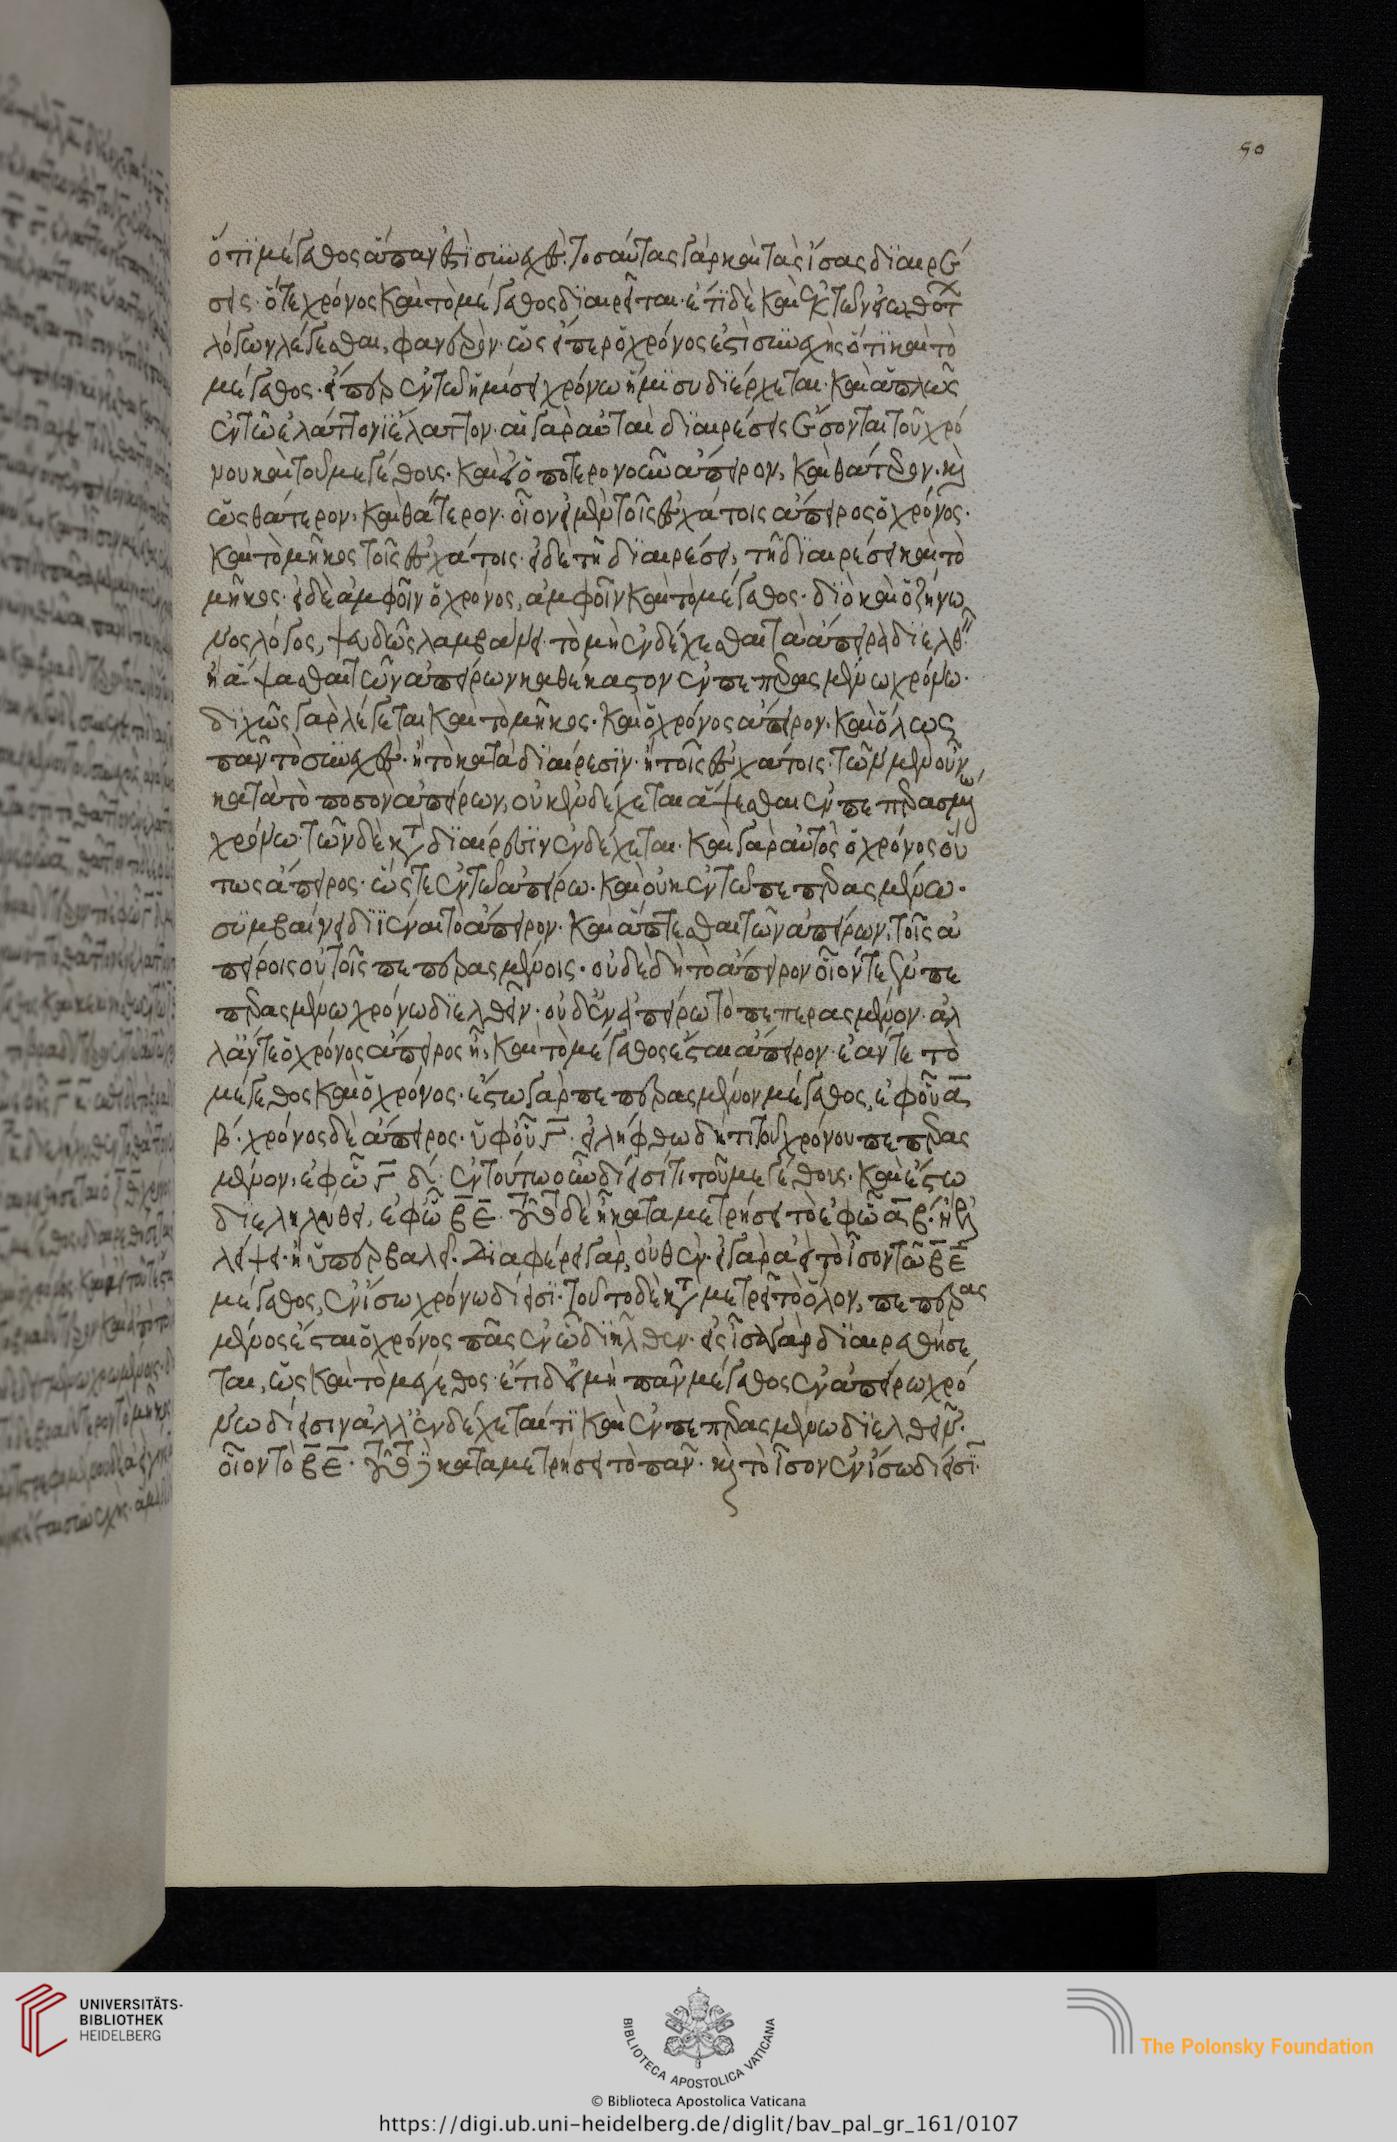 ὅτι μέγεθος ἅπαν ἐστὶ συνεχές· τοσαύτας γὰρ καὶ τὰς ἴσας διαιρέ
σεις· ὅτε χρόνος καὶ τὸ μέγεθος διαιρεῖται· ἔτι δὲ καὶ ἐκ τῶν εἰωθότ
λόγων λέγεσθαι, φανερὸν· ὡς εἴπερ ὁ χρόνος ἐστὶ συνεχὴς ὅτι καὶ τὸ
μέγεθος· εἴπερ ἐν τῶ ἡμίσει χρόνω ἥμισυ διέρχεται· καὶ ἁπλῶς
ἐν τῶ ἐλάττονι ἔλαττον· αἱ γὰρ αὐταὶ διαιρέσεις ἔσονται τοῦ χρό
νου καὶ τοῦ μεγέθους· καὶ εἰ ὁποτερονοῦν ἄπειρον, καὶ θάτερον· καὶ
ὡς θάτερον, καὶ θάτερον· οἷον εἰ μὲν τοῖς ἐσχάτοις ἄπειρος ὁ χρόνος·
καὶ τὸ μῆκος τοῖς ἐσχάτοις· εἰ δὲ τῆ διαιρέσει, τῆ διαιρέσει καὶ τὸ
μῆκος· εἰ δὲ ἀμφοῖν ὁ χρόνος, ἀμφοῖν καὶ τὸ μέγεθος· διὸ καὶ ὁ ζήνω
νος λόγος, ψευδῶς λαμβάνει· τὸ μὴ ἐνδέχεσθαι τὰ ἄπειρα διελθεῖν
ἢ ἅψασθαι τῶν ἀπείρων καθέκαστον ἐν πεπερασμένω χρόνω·
διχῶς γὰρ λέγεται καὶ τὸ μῆκος· καὶ ὁ χρόνος ἄπειρον· καὶ ὅλως
πᾶν τὸ συνεχές· ἢ τὸ κατὰ διαίρεσιν· ἢ τοῖς ἐσχάτοις· τῶν μὲν οὖν
κατὰ τὸ ποσὸν ἀπείρων, οὐκ ἐνδέχεται ἅψεσθαι ἐν πεπερασμένω
χρόνω· τῶν δὲ κατὰ διαίρεσιν ἐνδέχεται· καὶ γὰρ αὐτὸς ὁ χρόνος οὕ
τως ἄπειρος· ὥστε ἐν τῶ ἀπείρω· καὶ οὐκ ἐν τῶ πεπερασμένω·
συμβαίνει διϊέναι τὸ ἄπειρον· καὶ ἅπτεσθαι τῶν ἀπείρων, τοῖς ἀ
πείροις οὐ τοῖς πεπερασμένοις· οὐδὲ δὴ τὸ ἄπειρον οἷόν τε ἐν πε
περασμένω χρόνω διελθεῖν· οὐδ' ἐν ἀπείρω τὸ πεπερασμένον· ἀλ
λ' ἄν τε ὁ χρόνος ἄπειρος ῆ, καὶ τὸ μέγεθος ἔσται ἄπειρον· ἐάν τε τὸ
μέγεθος καὶ ὁ χρόνος· ἔστω γὰρ πεπερασμένον μέγεθος, ἐφ οὗ α
β· χρόνος δὲ ἄπειρος· ὑφ οὗ γ· εἰλήφθω δή τι τοῦ χρόνου πεπερας
μένον, ἐφ ὧ γ δ· ἐν τούτω οὖν δίεισί τι τοῦ μεγέθους· καὶ ἔστω
διεληλυθὸς, ἐφ ὧ β ε· τοῦτο δὲ ἢ καταμετρήσει τὸ ἐφ ὧ α β· ἢ ἐλ
λείψει· ἢ ὑπερβαλεῖ· διαφέρει γὰρ, οὐθέν· εἰ γὰρ ἀεὶ τὸ ἴσον τῶ β ε
μέγεθος, ἐν ἴσω χρόνω δίεισι· τοῦτο δὲ καταμετρεῖ τὸ ὅλον, πεπερας
μένος ἔσται ὁ χρόνος πᾶς ἐν ὧ διῆλθεν· εἰς ἴσα γὰρ διαιρεθήσε
ται, ὡς καὶ τὸ μέγεθος· ἔτι δ' εἰ μὴ πᾶν μέγεθος ἐν ἀπείρω χρό
νω δίεισιν ἀλλ' ἐνδέχεταί τι καὶ ἐν πεπερασμένω διελθεῖν·
οἷον τὸ β ε· τοῦτο δὲ καταμετρήσει τὸ πᾶν· καὶ τὸ ἴσον ἐν ἴσω δίεισι·
50
UNIVERSITÄTS-
BIBLIOTHEK
HEIDELBERG
BIBLIOTECA APOSTOLICA VATICANA
© Biblioteca Apostolica Vaticana
The Polonsky Foundation
https://digi.ub.uni-heidelberg.de/diglit/bav_pal_gr_161/0107